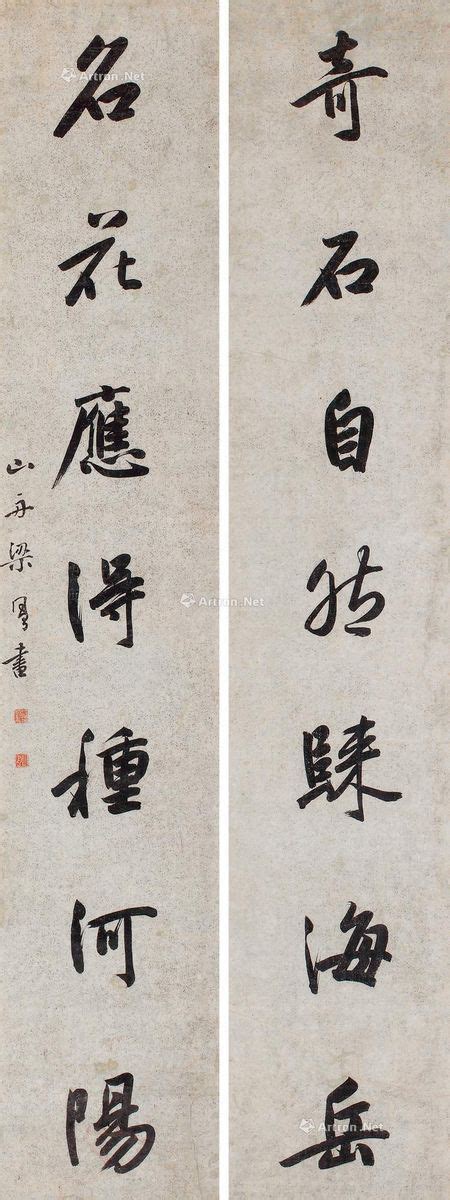 奇石自然歸海岳
名花應得種河陽
山舟梁同書
Artron.Net
Artron.Net
Artron.Net